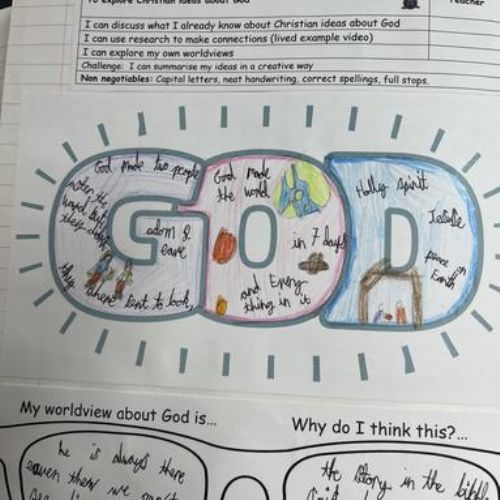 To explore Christian ideas about God
Teacher
I can discuss what I already know about Christian ideas about God
I can use research to make connections (lived example video)
I can explore my own worldviews
Challenge: I can summarise my ideas in a creative way
Non negotiables: Capital letters, neat handwriting, correct spellings, full stops.
GOD
God made two people
adom &
eave
they where sent to look
God made
the world
in 7 days
and Every
thing in it
Holly spirit
peace on
Earth
My worldview about God is...
he is always there
eaven then we
Why do I think this?...
the story in the bible